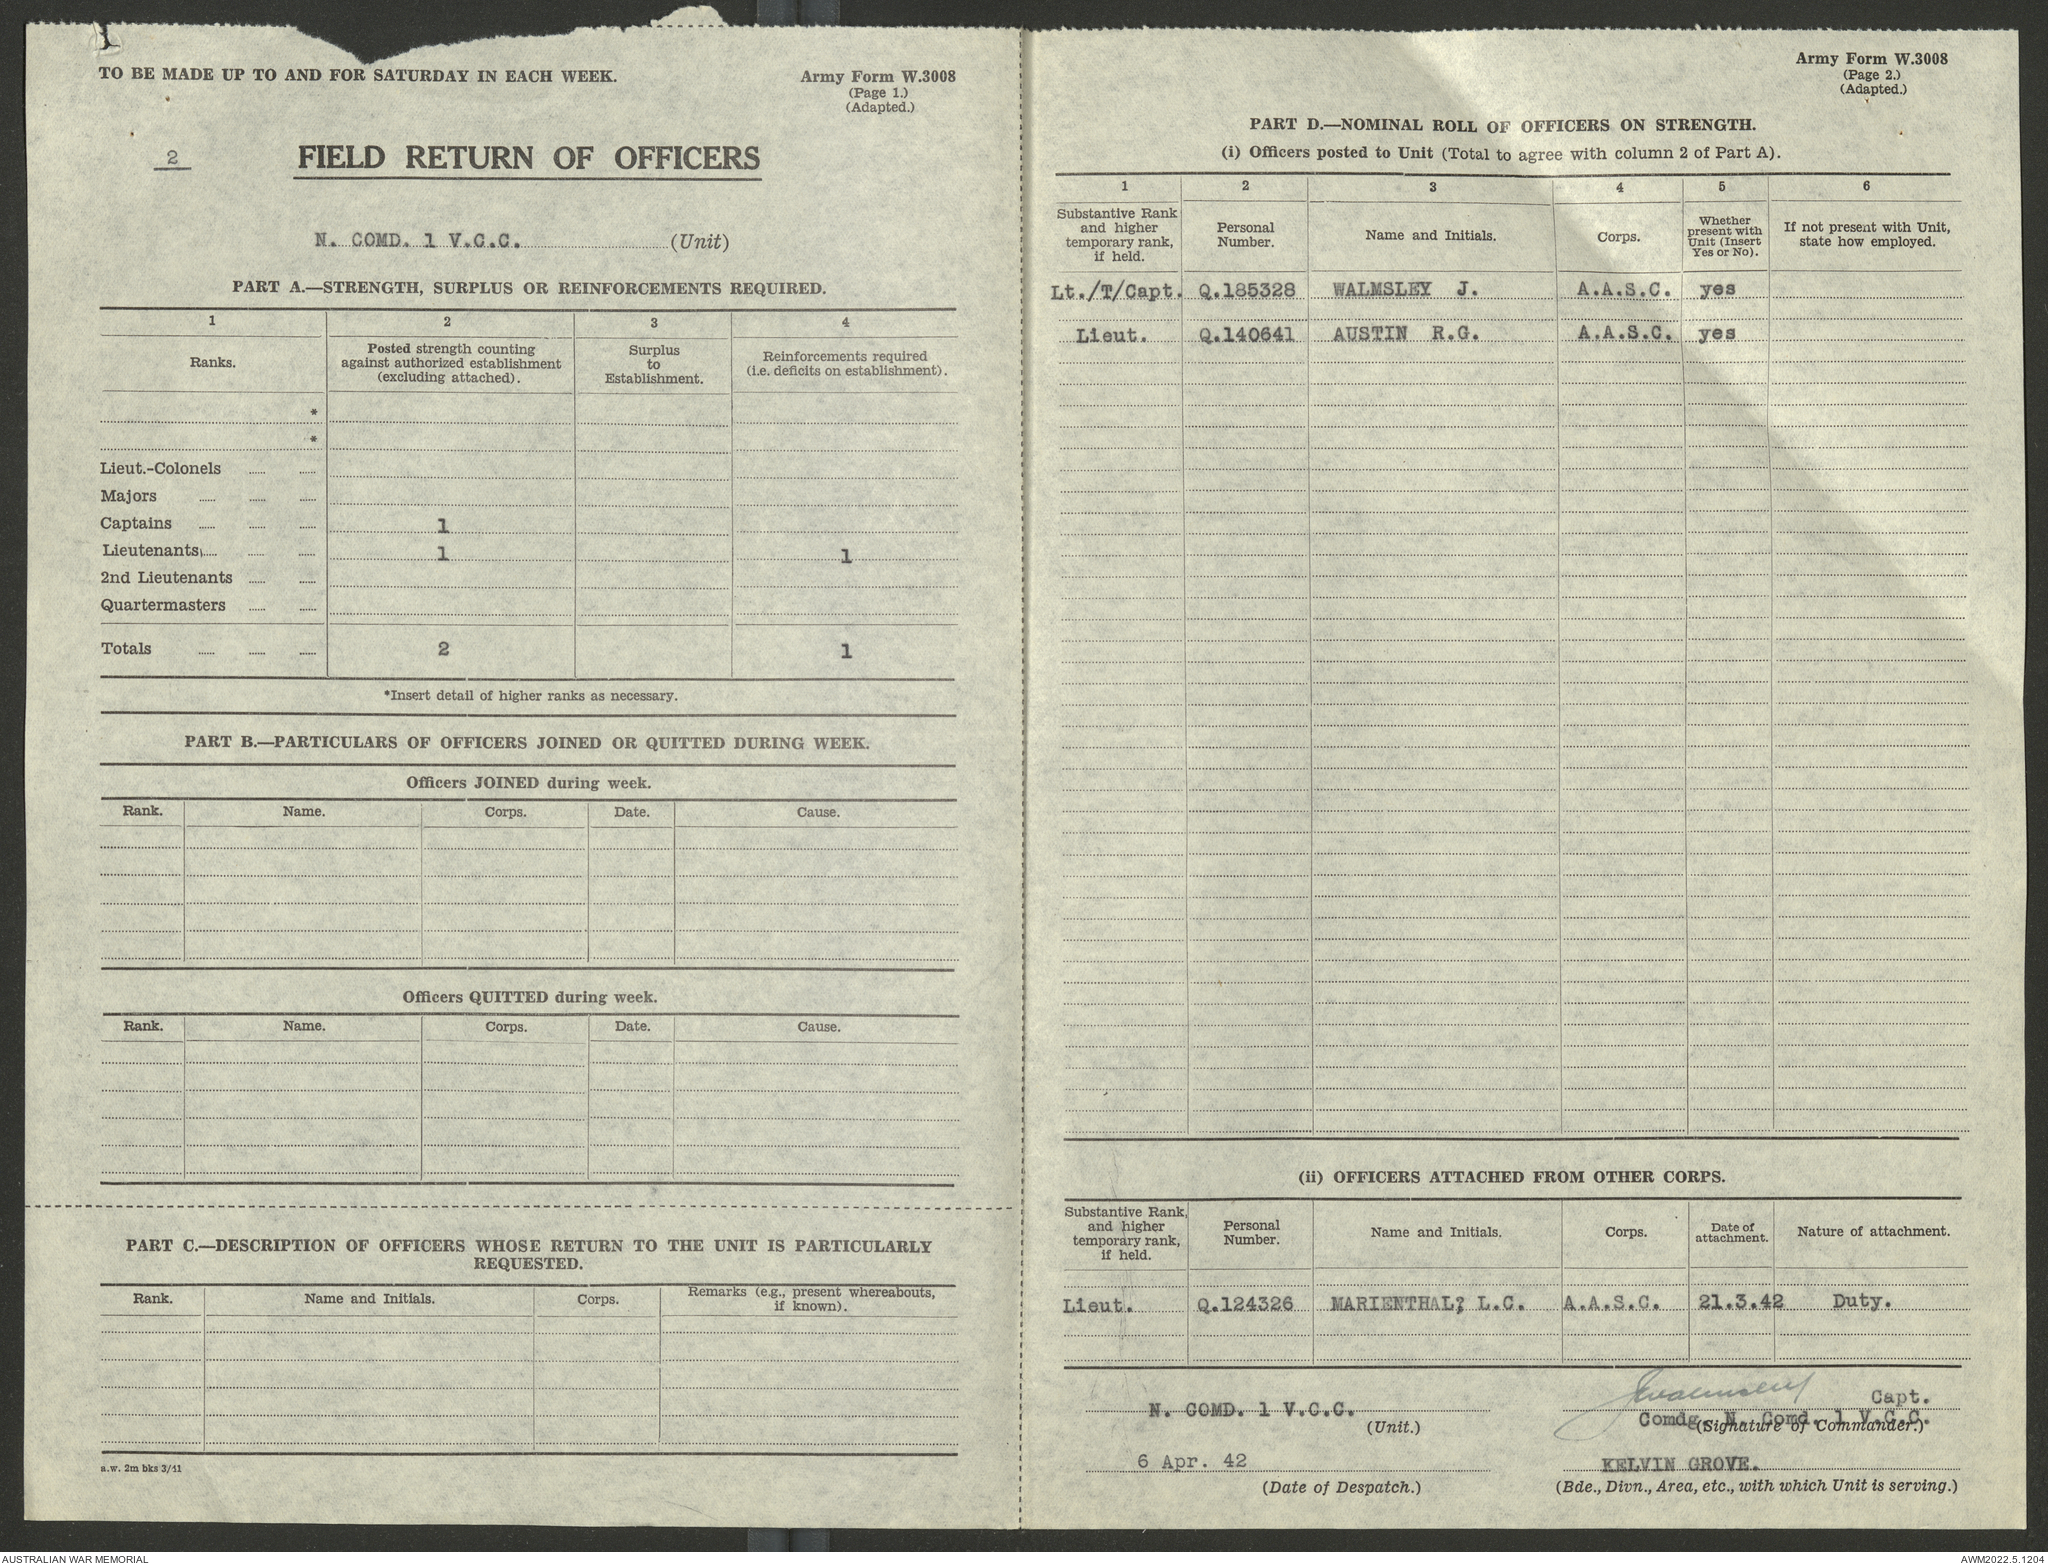 TO BE MADE UP TO AND FOR SATURDAY IN EACH WEEK.
Army Form W.3008
(Page 1.)
(Adapted.)
2
FIELD RETURN OF OFFICERS
N. COMD. 1 V.C.C. (Unit)
PART A.—STRENGTH, SURPLUS OR REINFORCEMENTS REQUIRED.
1 2 3 4
Ranks. Posted strength counting against authorized establishment (excluding attached). Surplus to Establishment. Reinforcements required (i.e. deficits on establishment).
*
*
Lieut.-Colonels
Majors
Captains 1
Lieutenants 1 1
2nd Lieutenants
Quartermasters
Totals 2 1
*Insert detail of higher ranks as necessary.
PART B.—PARTICULARS OF OFFICERS JOINED OR QUITTED DURING WEEK.
Officers JOINED during week.
Rank. Name. Corps. Date. Cause.
Officers QUITTED during week.
Rank. Name. Corps. Date. Cause.
PART C.—DESCRIPTION OF OFFICERS WHOSE RETURN TO THE UNIT IS PARTICULARLY
REQUESTED.
Rank. Name and Initials. Corps. Remarks (e.g., present whereabouts, if known).
a.w. 2m bks 3/41
Army Form W.3008
(Page 2.)
(Adapted.)
PART D.—NOMINAL ROLL OF OFFICERS ON STRENGTH.
(i) Officers posted to Unit (Total to agree with column 2 of Part A).
1 2 3 4 5 6
Substantive Rank and higher temporary rank, if held. Personal Number. Name and Initials. Corps. Whether present with Unit (Insert Yes or No). If not present with Unit, state how employed.
Lt./T/Capt. Q.185328 WALMSLEY J. A.A.S.C. yes
Lieut. Q.140641 AUSTIN R.G. A.A.S.C. yes
(ii) OFFICERS ATTACHED FROM OTHER CORPS.
Substantive Rank, and higher temporary rank, if held. Personal Number. Name and Initials. Corps. Date of attachment. Nature of attachment.
Lieut. Q.124326 MARIENTHAL, L.C. A.A.S.C. 21.3.42 Duty.
JWalmsley Capt.
N. COMD. 1 V.C.C. Comdg. N. Comd. 1 V.C.C.
(Unit.) (Signature of Commander.)
6 Apr. 42 KELVIN GROVE.
(Date of Despatch.) (Bde., Divn., Area, etc., with which Unit is serving.)
AUSTRALIAN WAR MEMORIAL AWM2022.5.1204